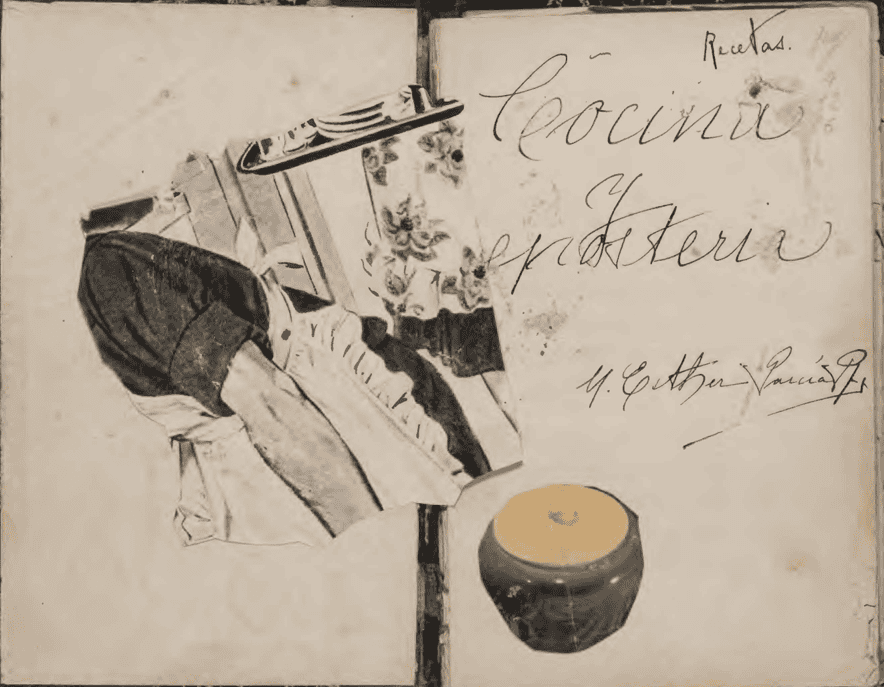 Recetas.
Cocina
y
eposteria
M. Esther García R.